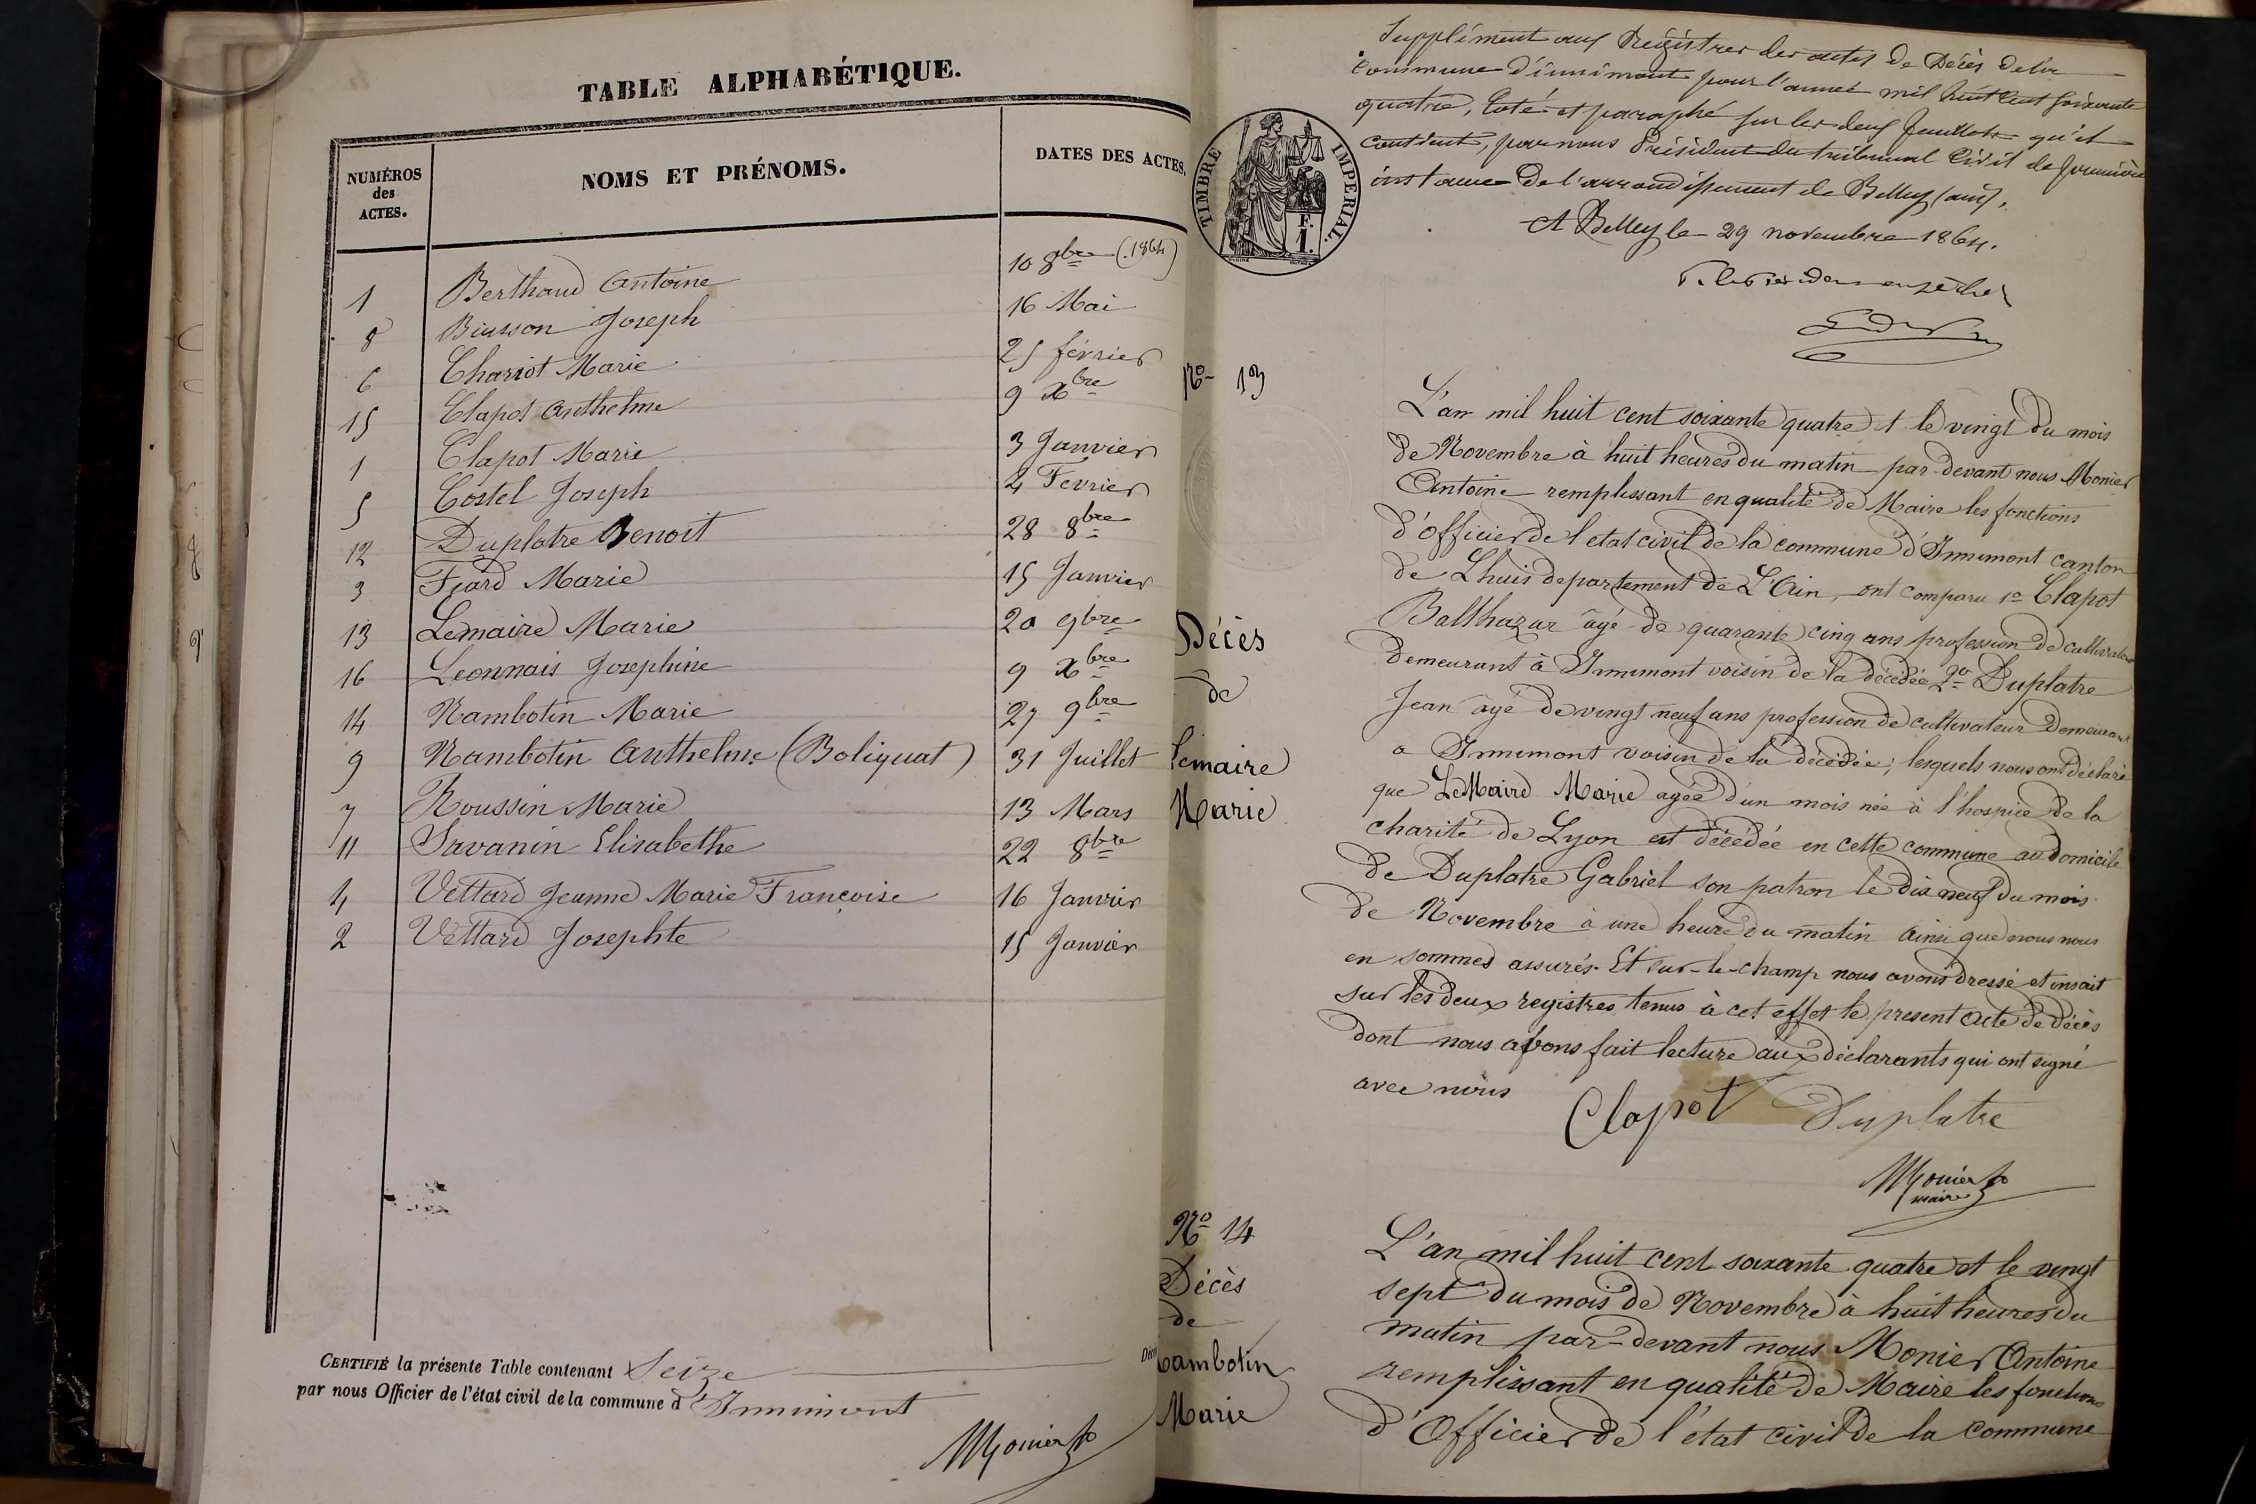 TABLE ALPHABÉTIQUE.
NUMÉROS
des
ACTES.
NOMS ET PRÉNOMS.
DATES DES ACTES.
1 Berthaud Antoine 10 8bre (1864)
8 Biusson Joseph 16 Mai
6 Chariot Marie 25 février
15 Clapot Anthelme 9 Xbre
1 Clapot Marie 3 Janvier
5 Costel Joseph 4 Fevrier
12 Duplatre Benoit 28 8bre
3 Fiard Marie 15 Janvier
13 Lemaire Marie 20 9bre
16 Leonnais Josephine 9 Xbre
14 Nambotin Marie 27 9bre
9 Nambotin Anthelme (Boliquat) 31 Juillet
7 Roussin Marie 13 Mars
11 Savanin Elisabethe 22 8bre
4 Vettard Jeanne Marie Françoise 16 Janvier
2 Vettard Josephte 15 Janvier
CERTIFIÉ la présente Table contenant Seize
par nous Officier de l'état civil de la commune d'Innimont
Monier
Supplément aux Régistres des actes de Décès de la
commune d'innimont pour l'année mil huit cent soixante
quatre, Coté et paraphé sur les deux feuillets qu'il
contient, par nous Président du tribunal Civil de première
instance de l'arrondissement de Belley (ain).
A Belley le 29 novembre 1864.
TIMBRE IMPÉRIAL.
F.
1.
No 13
Décès
de
Lemaire
Marie
L'an mil huit cent soixante quatre et le vingt du mois
de Novembre à huit heures du matin par devant nous Monier
Antoine remplissant en qualité de Maire les fonctions
d'Officier de l etat civil de la commune d'Innimont canton
de Lhuis departement de L'Ain, ont comparu 1o Clapot
Balthazar âgé de quarante cinq ans profession de cultivateur
demeurant à Innimont voisin de la décédée 2o Duplatre
Jean âgé de vingt neuf ans profession de cultivateur demeurant
a Innimont voisin de la décédée; lesquels nous ont déclaré
que LeMaire Marie agée d'un mois née à l'hospice de la
charité de Lyon est décédée en cette commune au domicile
de Duplatre Gabriel son patron le dix neuf du mois
de Novembre à une heure du matin ainsi que nous nous
en sommes assurés. Et sur-le-champ nous avons dressé et inscrit
sur les deux registres tenus à cet effet le présent acte de décès
dont nous avons fait lecture aux déclarants qui ont signé
avec nous
Clapot Duplatre
Monier
maire
No 14
Décès
de
Nambotin
Marie
L'an mil huit cent soixante quatre et le vingt
sept du mois de Novembre à huit heures du
matin par-devant nous Monier Antoine
remplissant en qualité de Maire les fonctions
d'Officier de l'état civil de la commune